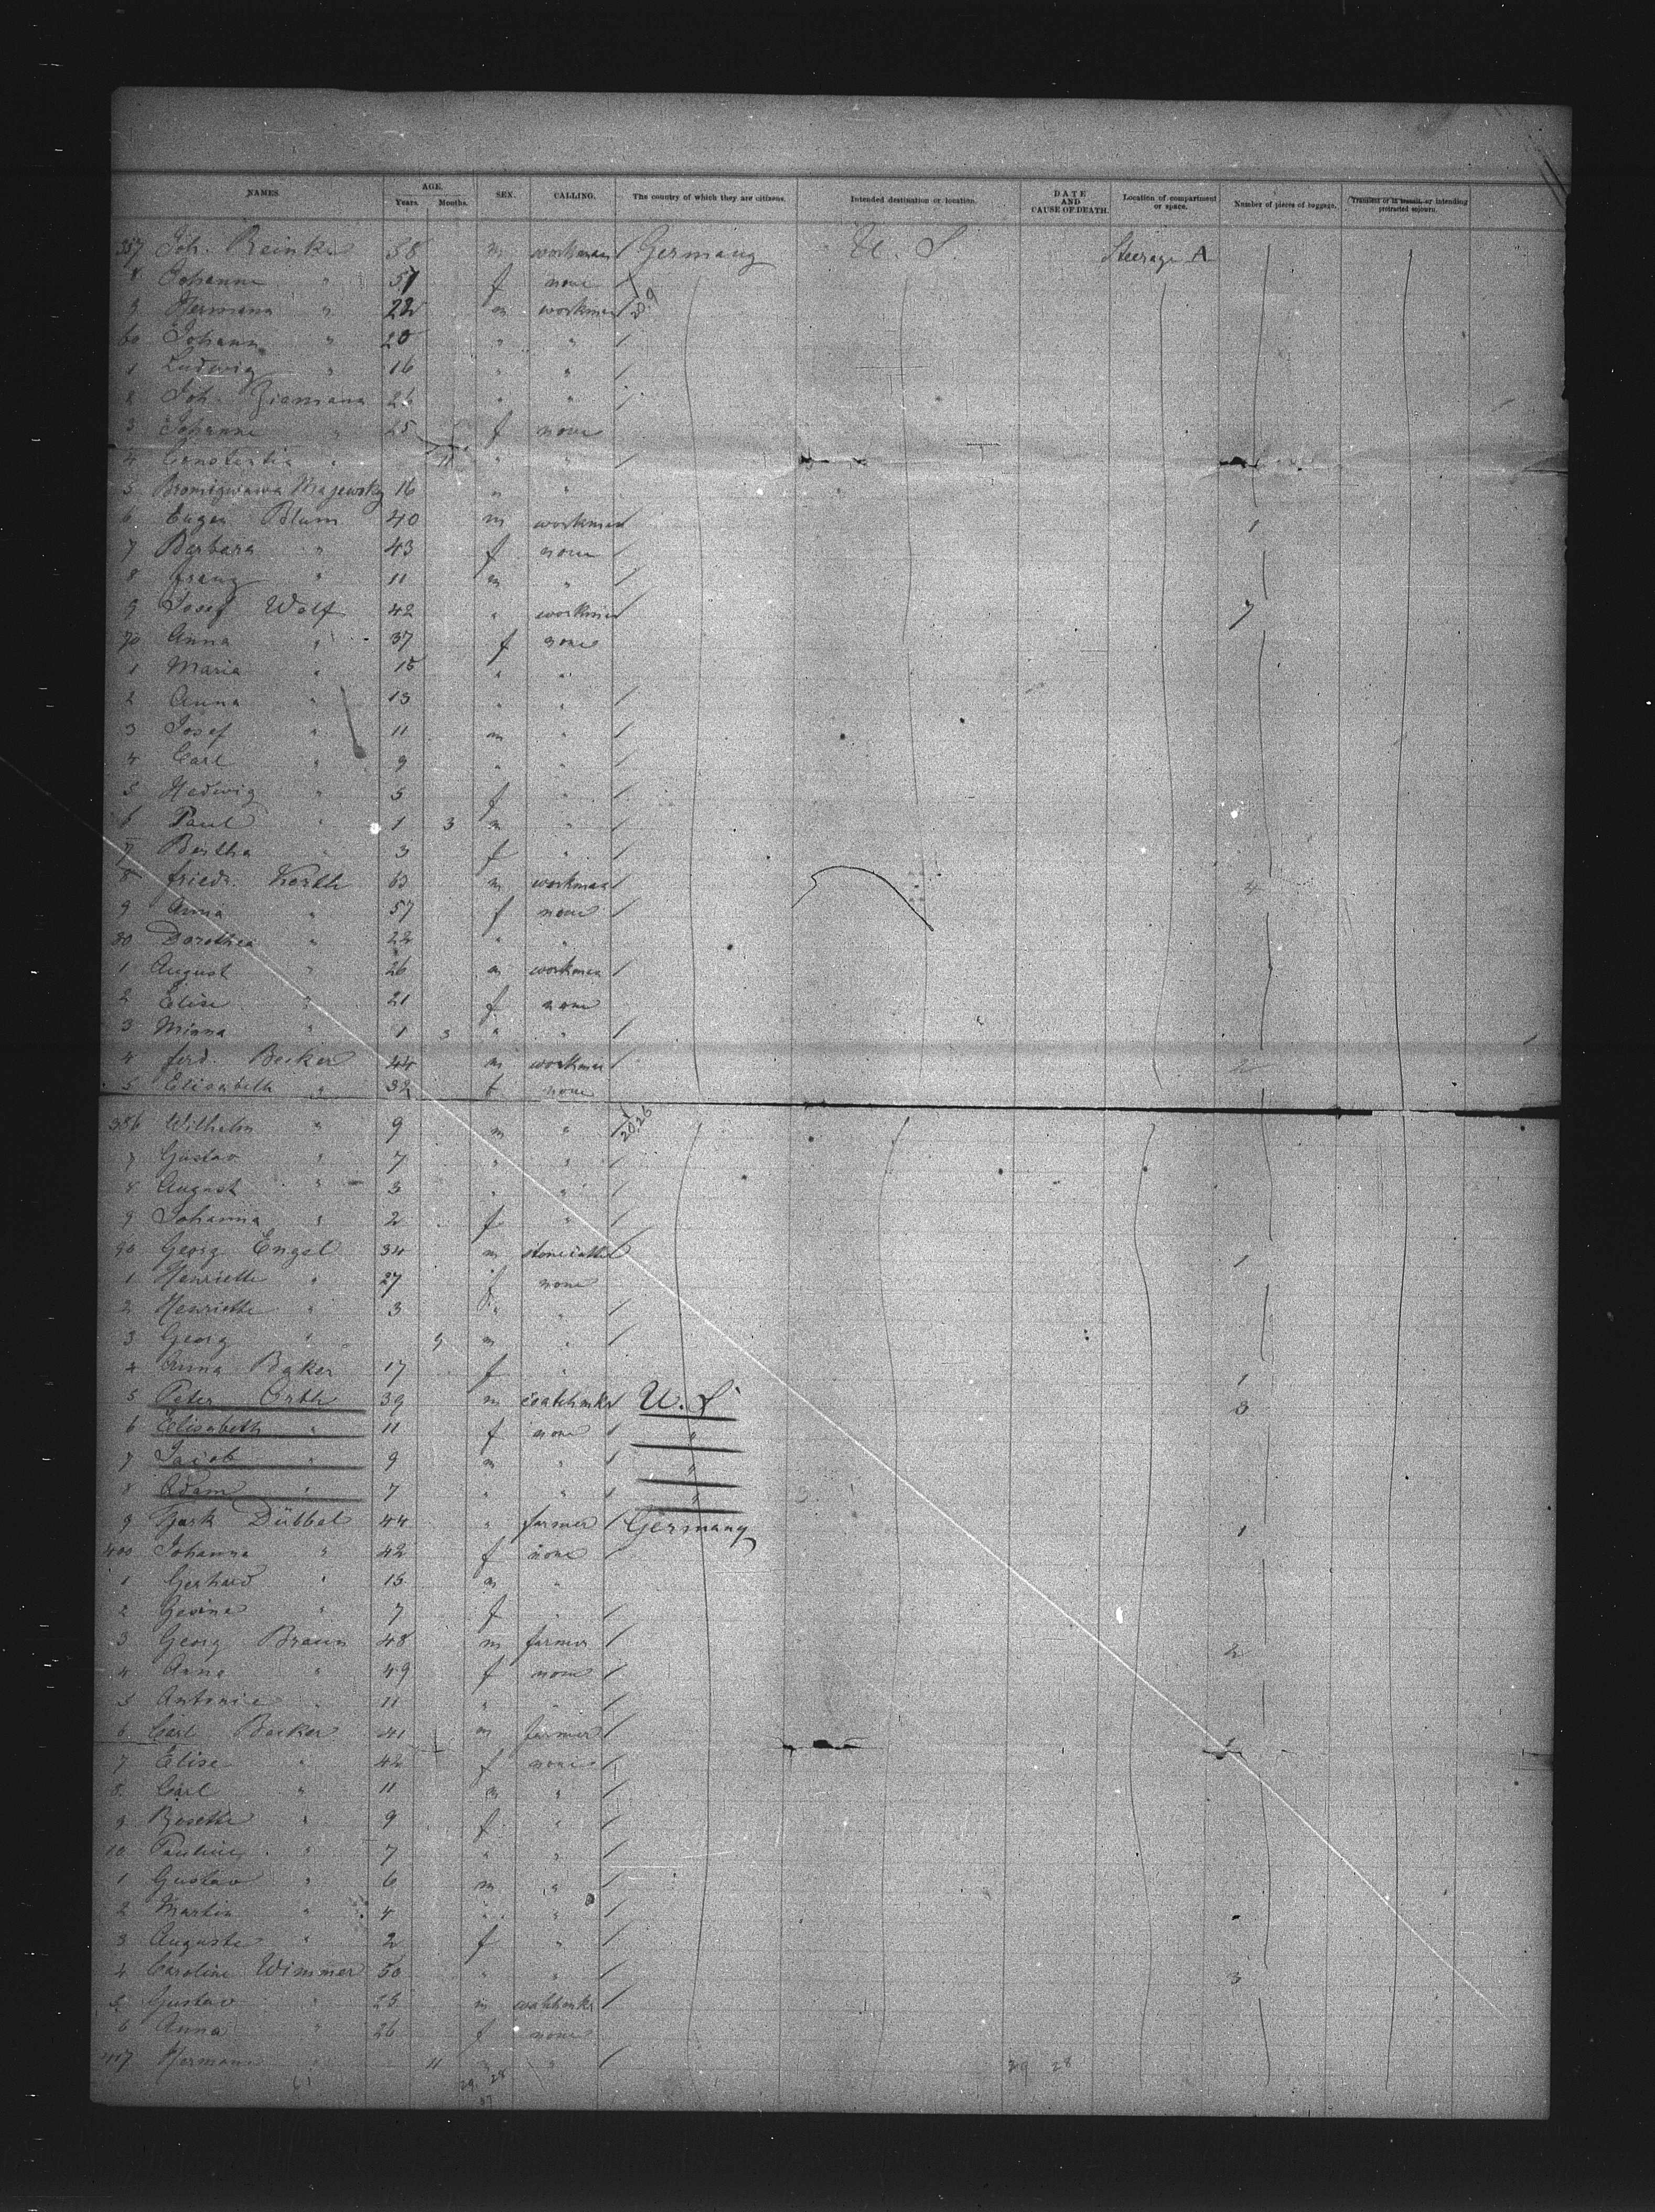 NAMES. AGE. Years. Months. SEX. CALLING. The country of which they are citizens. Intended destination or location. DATE AND CAUSE OF DEATH. Location of compartment or space. Number of pieces of baggage. Transient or in transit, or intending protracted sojourn.
357 Joh. Reinke 58 m workman / Germany U. S. Steerage A
8 Johanne " 51 f none /
9 Hermann " 22 m workman /
60 Johann " 20 " " /
1 Ludwig " 16 " " /
2 Joh. Ziemann 26 " " /
3 Johanne " 25 f none
4 " 11 " " /
5 Majewsky 16 " "
6 Eugen Blum 40 m workman / 1
7 Barbara " 43 f none /
8 Franz " 11 m " /
9 Josef Wolf 42 " workman 7
70 Anna " 37 f none
1 Maria " 15 " "
2 Anna " 13 " " /
3 Josef " 11 m " /
4 Carl " 9 " " /
5 Hedwig " 5 f " /
6 Paul " 1 3 m " /
7 Bertha " 3 f " /
8 Friedr. Korth 63 m workman / 4
9 Anna " 57 f none /
80 Dorothea " 22 " "
1 August " 26 m workman /
2 Elise " 21 f none
3 Minna " 1 3 " " /
4 Ferd. Becker 44 m workman / 2
5 Elisabeth " 32 f none
386 Wilhelm " 9 m " /
7 Gustav " 7 " " /
8 August " 3 " " /
9 Johanna " 2 f " /
90 Georg Engel 34 m stonecutter 1
1 Henriette " 27 f none
2 Henriette " 3 " " /
3 Georg " 9 m " /
4 Anna Baker 17 f " 1
5 Peter Orth 39 m U. S. 3
6 Elisabeth " 11 f none / "
7 Jacob " 9 m " / "
8 Adam " 7 " " / "
9 Dübbel 44 " farmer / Germany 1
400 Johanna " 42 f none /
1 Gerhard " 15 m "
2 Gesine " 7 f " /
3 Georg Braun 48 m farmer / 2
4 Anna " 49 f none /
5 Antonie " 11 " " /
6 Carl Becker 41 m farmer / 1
7 Elise " 42 f none /
8 Carl " 11 m " /
9 Rosette " 9 f " /
10 Pauline " 7 " " /
1 Gustav " 6 m " /
2 Martin " 4 " " /
3 Auguste " 2 f " /
4 Caroline Wimmer 50 " " / 3
5 Gustav " 25 m /
6 Anna " 26 f none
417 Hermann " 11 " " / 29 28
29 28